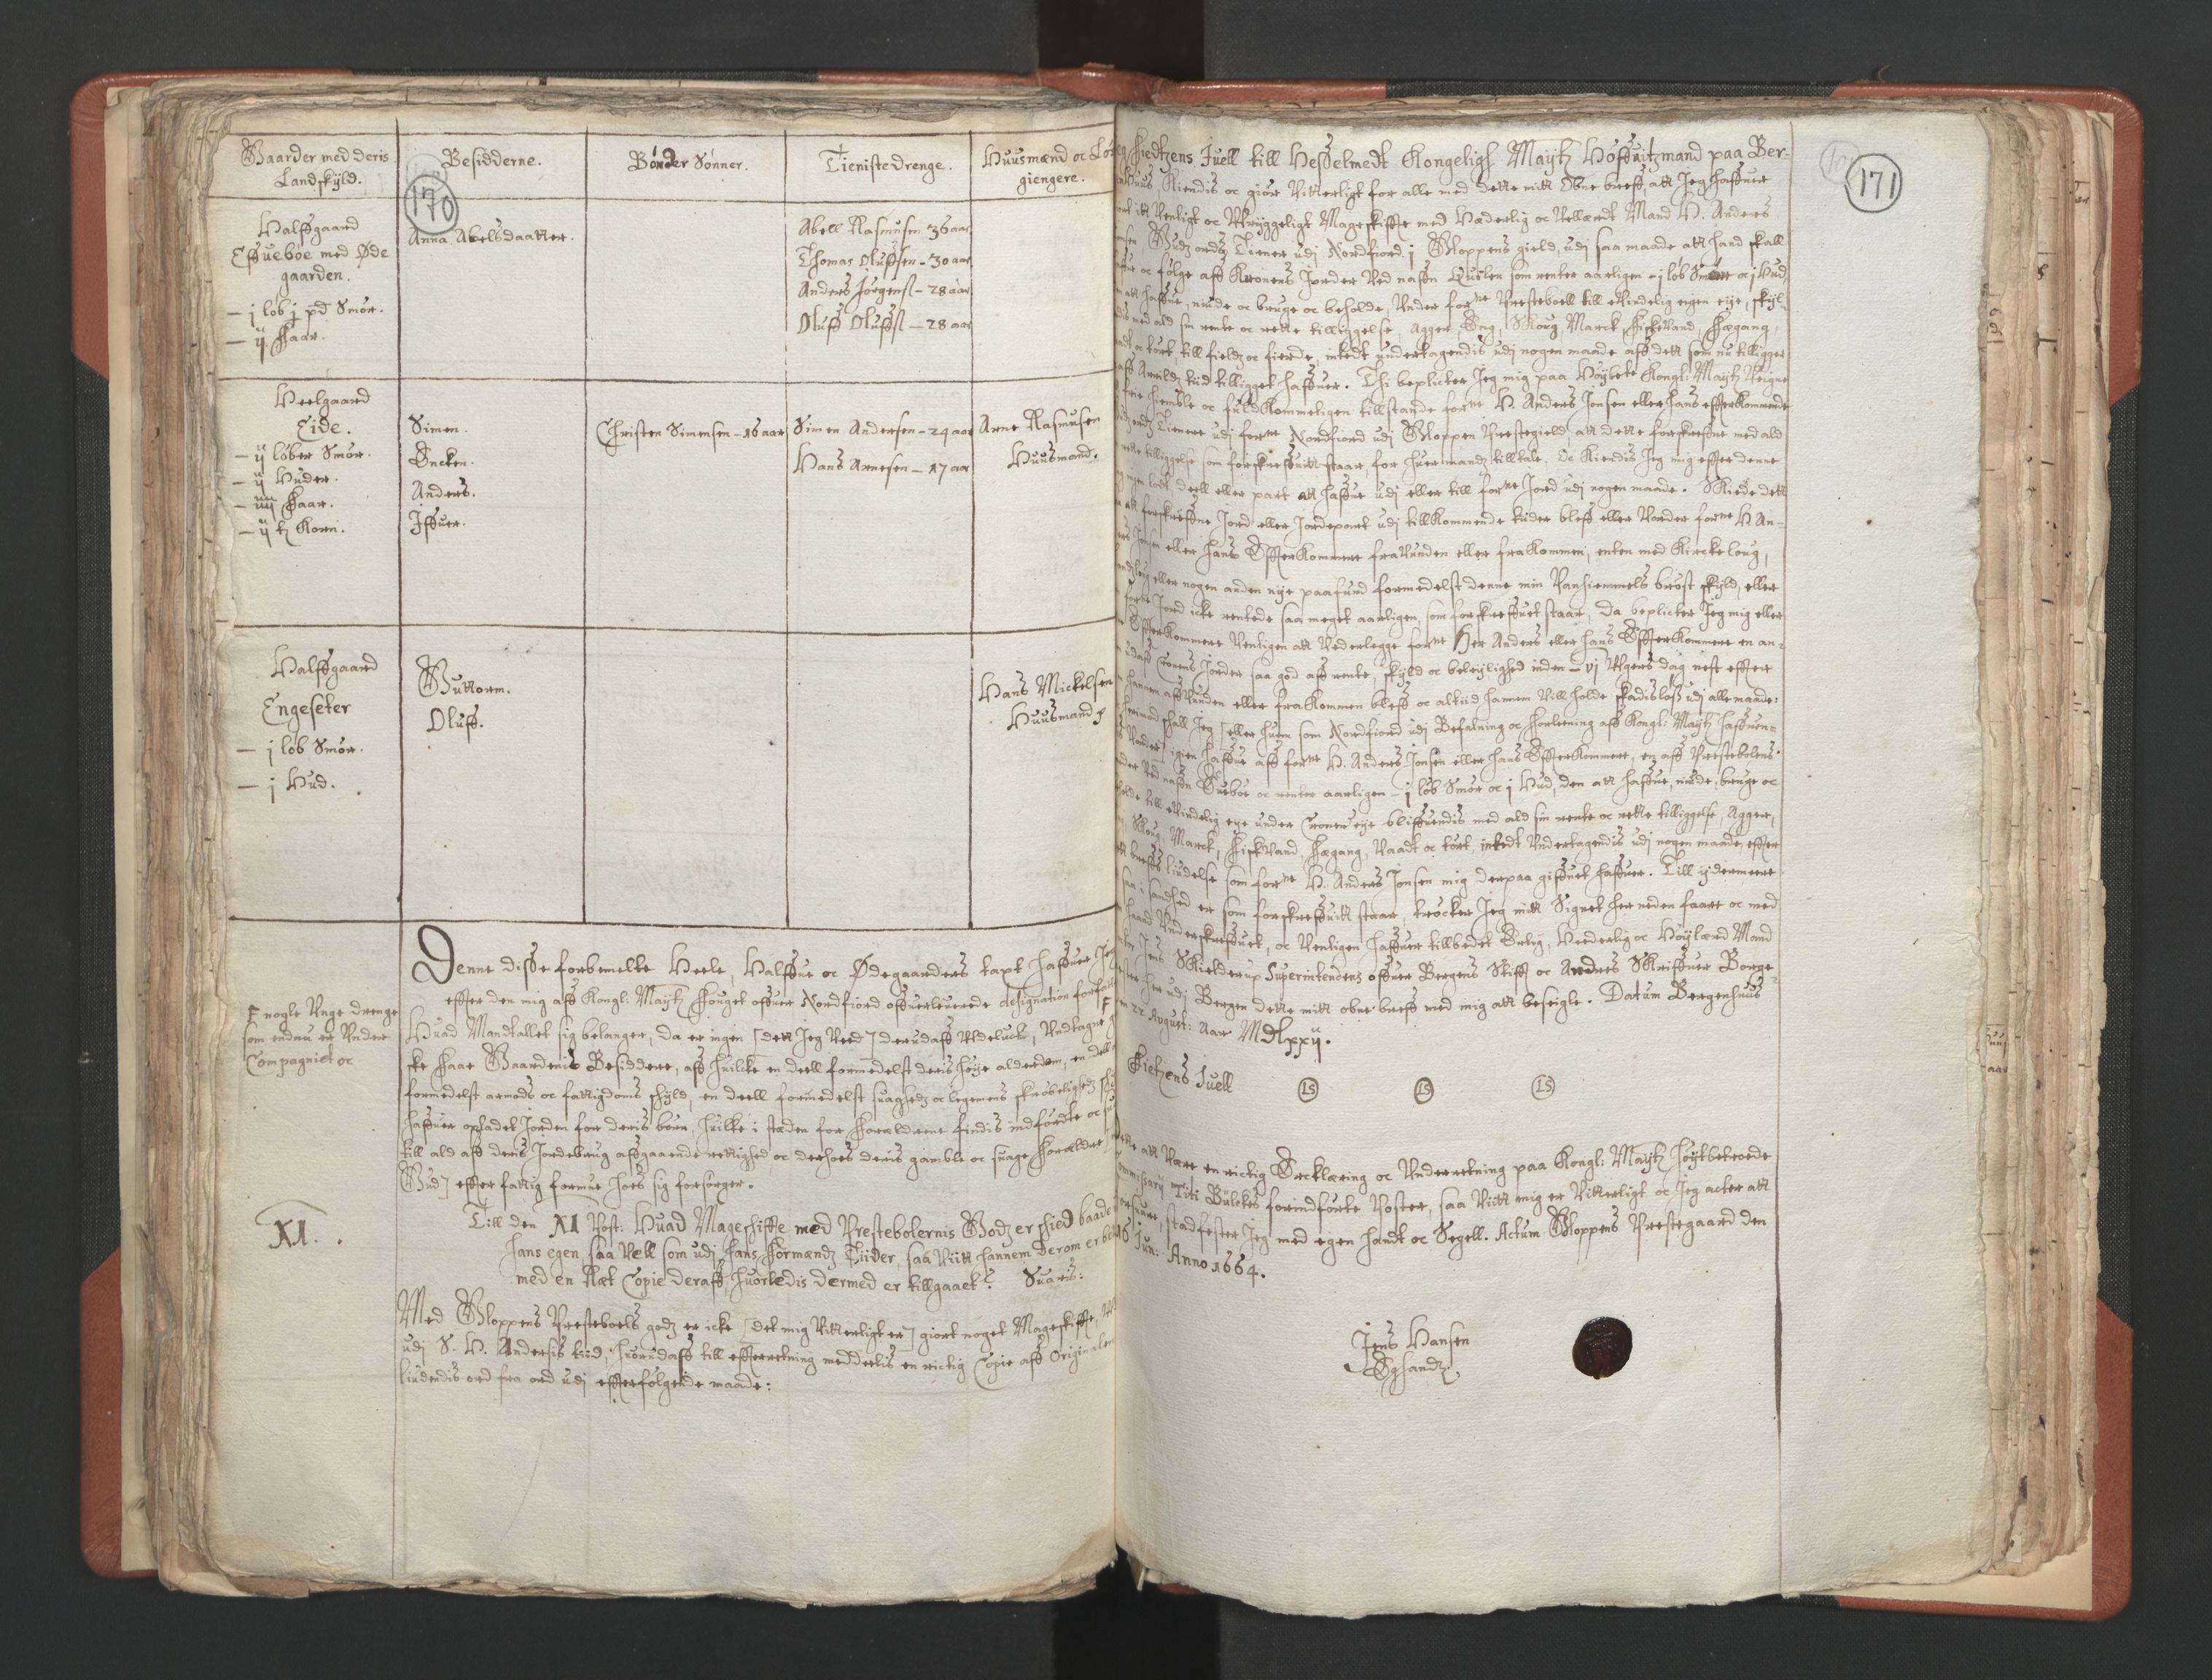 Gaarder med deris
Landskÿld.
Besidderne.
Bønder Sønner.
Tienistedrenge.
Huusmænd oc Løs
giengere.
170
Halffgaard
Effuebøe med Øde
gaarden.
— j løb j pd Smør.
— ij Faar.
Anna Abelsdaatter.
Abell Rasmusen - 36 aar
Thomas Oluffsen - 30 aar
Anders Jørgensß - 28 aar
Oluff Oluffsß - 28 aar
Heelgaard
Eide.
— ij løber Smør.
— ij Huder.
— iiij Faar.
— ij tz Korn.
Simen.
Encken.
Anders.
Iffuer.
Christen Simensen - 16 aar
Simen Andersen - 24 aar
Hans Arnesen - 17 aar
Arne Rasmusen
Huusmand.
Halffgaard
Engeseter
— j løb Smør.
— j Hud.
Guttorm.
Oluff.
Hans Mickelsen
Huusmand
Denne disse forbemelte Heele, Halffue oc Ødegaarders tapt haffuer Jeg
effter den mig aff Kongl: Maÿtz Fouget offuer Nordfiord offuerleuerede designation
Huad Mandtallet sig belanger, da er ingen [dett Jeg Veed] derudaff Vdeluckt, Vndtagne
nogle Vnge drenge
som endnu er Vnder
Compagniet oc
ske faae Gaardenis Besiddere, aff huilcke en deell formedelst deris høÿe alderdom, en deell
formedelst armods oc fattigdoms skÿld, en deell formedelst suaghedz oc legemens skrøbelighedz
haffuer opladet Jorden for deris børn, huilke i steden for Forældrene findis indførdte oc
till ald aff deris Jordebrug affgaaende rettighed oc derhoes deris gamble oc suage Forældre
Gud] effter fattig formue hoes sig forsørger.
XI.
Till den XI Post: Huad Mageschiffte med Prestebolernis Godz er skied baade
hans egen saa Vell som udj hans Formændz Tiider, saa Viitt hannem derom er
med en Ræt Copie deraff, huorledis dermed er tillgaaet? Suaris:
Med Gloppens Presteboels godz er icke [det mig Vitterligt er] giort noget Mageskiffte,
udj S. H. Andersis tiid, huorudaff till effterretning meddeelis en rictig Copie aff Originalen
liudendis ord fra ord udj effterfølgende maade:
171
Fiedtzens Juell till Hesselmedt Kongeligh Maÿtz Høffuitzmand paa Ber-
Huus Kiendis oc giør Vitterligt for alle med dette mitt Obne breff, att Jeg haffuer
itt Venligt oc Vbrÿggeligt Mageskiffte med Hæderlig oc Vellærdt Mand H. Anders
Gudz ordtz Tienere udj Nordfiord j Gloppens gield, udj saa maade att hand skall
oc følge aff Kronens Jorder Ved naffn Quilen som renter aarligen - j løb Smør oc j Hud,
att haffue, niude oc bruge oc beholde, Vnder forne Presteboell till eVindelig eigen eÿe, skÿl-
med ald sin rente oc rette tilliggelse, Agger, Eng, Skoug, Marck, FiskeVand, Fægang,
oc tørt, till fieldz oc fierde, intedt undertagendis udj nogen maade aff dett som nu tilligger
aff Arrildz tiid tilligget haffuer. Thi beplicter Jeg mig paa Høÿbete Kongl: Maÿtz Veigne
hiemble oc fuldKommeligen tillstande forne H. Anders Jonsen eller hans effterKommende
Tienere udj forne Nordfiord udj Gloppen Prestegield, att dette forskreffne med ald
tilliggelse som forskreffuitt staar, for huer mandz tilltale. Oc Kiendis Jeg mig effter denne
lodt deell eller part att haffue udj eller till forne Jord udj nogen maade. Skiede dett
forskreffne Jord eller Jordepart udj tillKommende tiider bleff eller Vorder forne H An-
Jonsen eller hans EffterKommere fraVunden eller fraKommen, enten med Kirckeloug,
eller nogen anden nÿe paafund formedelst denne min Vanhiemmels brøst skÿld, eller
Jord icke rentede saa meget aarligen, som forskreffuet staar, da beplicter Jeg mig eller
EffterKommere Venligen att Vederlegge forne Her Anders eller hans EffterKommere en an-
Cronens Jorder saa god aff rente, skÿld oc beleiÿlighed inden - vj Vgers dag nest effter
hannem affVunden eller fraKommen bleff oc altiid hannem Vill holde skadisløss udj alle maade:
skall Jeg [eller huem som Nordfiord udj Befalning oc Forlening aff Kongl: Maÿtz haffuen-
igien haffue aff forne H. Anders Jonsen eller hans EffterKommere, en aff Prestebolens
Ved naffn Euebøe oc renter aarligen - j løb Smør oc j Hud, den att haffue, niude, bruge oc
till eVindelig eÿe under Cronens eÿe bliffuendis med ald sin rente oc rette tilliggelse, Agger,
Skoug, Marck, FiskVand, Fægang, Vaadt oc tørt, intedt Vndertagendis udj nogen maade, effter
breffs liudelse som forne H. Anders Jonsen mig derpaa giffuet haffuer. Till ÿdermeere
saa i sandhed er som forskreffuitt staar, trøcker Jeg mitt Signet her neden faare oc med
haand Vnderskreffuet, oc Venligen haffuer tillbedet Erlig, Hæderlig oc Høÿlærd Mand
Jens Skielderup Superintendens offuer Bergens Stifft oc Anders Skriffuer Borge-
her udj Bergen dette mitt obne breff med mig att beseigle. Datum Bergenhuus
22 August: Aar Mdlxxij.
Fietzens Juell
LS
LS
LS
att Være en rictig Ercklæring oc Vnderretning paa Kongl: Maÿtz Høÿtbetroede
Commissarij Titi Bülckes forindførte Poster, saa Viitt mig er Vitterligt oc Jeg acter att
forsuare, stadfester Jeg med egen handt oc Segell. Actum Gloppens Prestegaard den
16 Jun: Anno 1664.
Jens Hansen